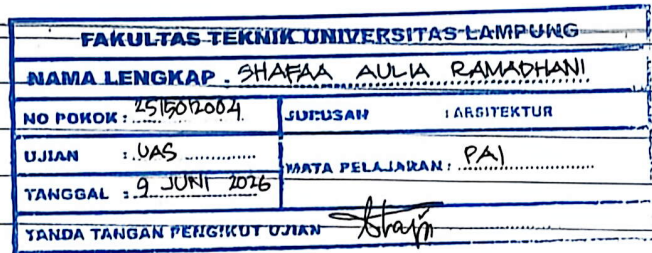 FAKULTAS TEKNIK UNIVERSITAS LAMPUNG
NAMA LENGKAP . SHAFAA AULIA RAMADHANI
NO POKOK : 2515012004 JURUSAN : ARSITEKTUR
UJIAN : UAS MATA PELAJARAN : PAI
TANGGAL : 9 JUNI 2026
TANDA TANGAN PENGIKUT UJIAN